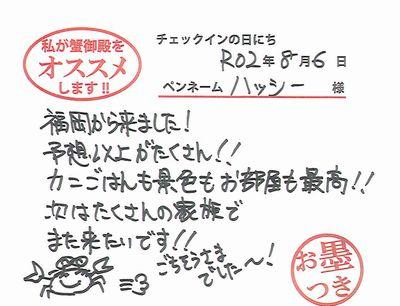 私が蟹御殿を
オススメ
します!!
チェックインの日にち
R02年8月6日
ペンネーム ハッシー 様
福岡から来ました!
予想以上がたくさん!!
カニごはんも景色もお部屋も最高!!
次はたくさんの家族で
また来たいです!!
ごちそうさま
でした〜!
お墨
つき